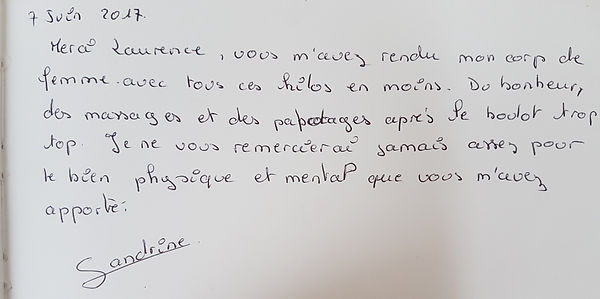 7 Juin 2017.
Merci Laurence, vous m'avez rendu mon corp de
femme avec tous ces kilos en moins. Du bonheur,
des massages et des papotages après le boulot trop
top. Je ne vous remercierai jamais assez pour
le bien physique et mental que vous m'avez
apporté.
Sandrine.